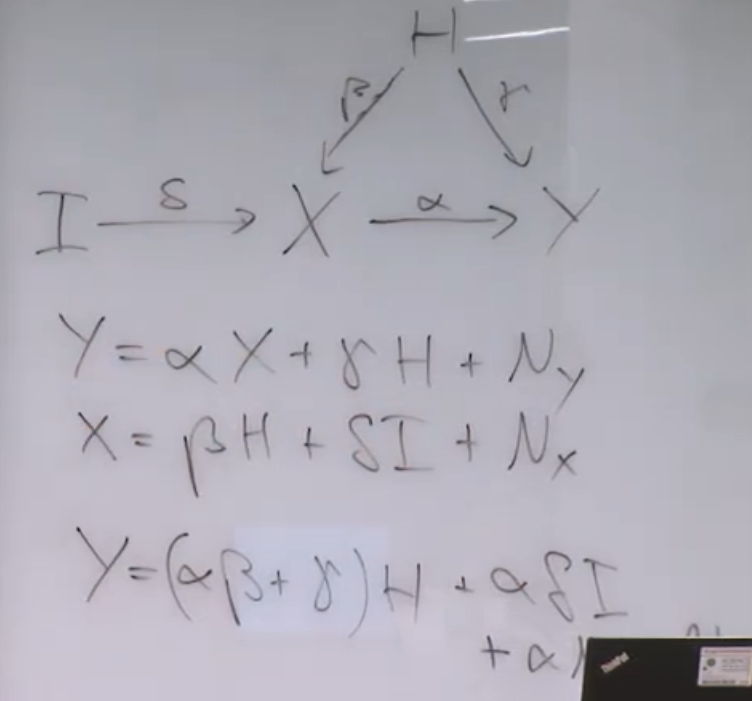 H
β γ
I δ X α Y
Y = αX + γH + N_Y
X = βH + δI + N_X
Y = (αβ + γ)H + αδI
+ α
ThinkPad